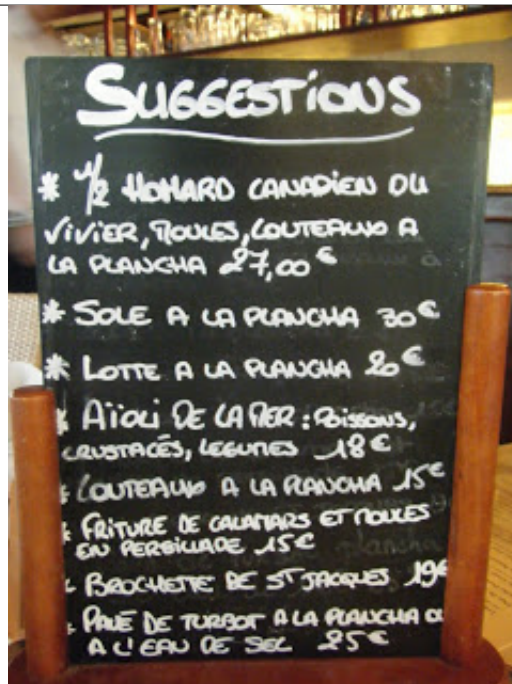 SUGGESTIONS
* 1/2 HOMARD CANADIEN DU
VIVIER, MOULES, COUTEAUX A
LA PLANCHA 27,00€
* SOLE A LA PLANCHA 30€
* LOTTE A LA PLANCHA 20€
* AÏOLI DE LA MER : POISSONS,
CRUSTACÉS, LEGUMES 18€
* COUTEAUX A LA PLANCHA 15€
* FRITURE DE CALAMARS ET MOULES
EN PERSILLADE 15€
* BROCHETTE DE ST JACQUES 19€
* PAVÉ DE TURBOT A LA PLANCHA OU
A L'EAU DE SEL 25€